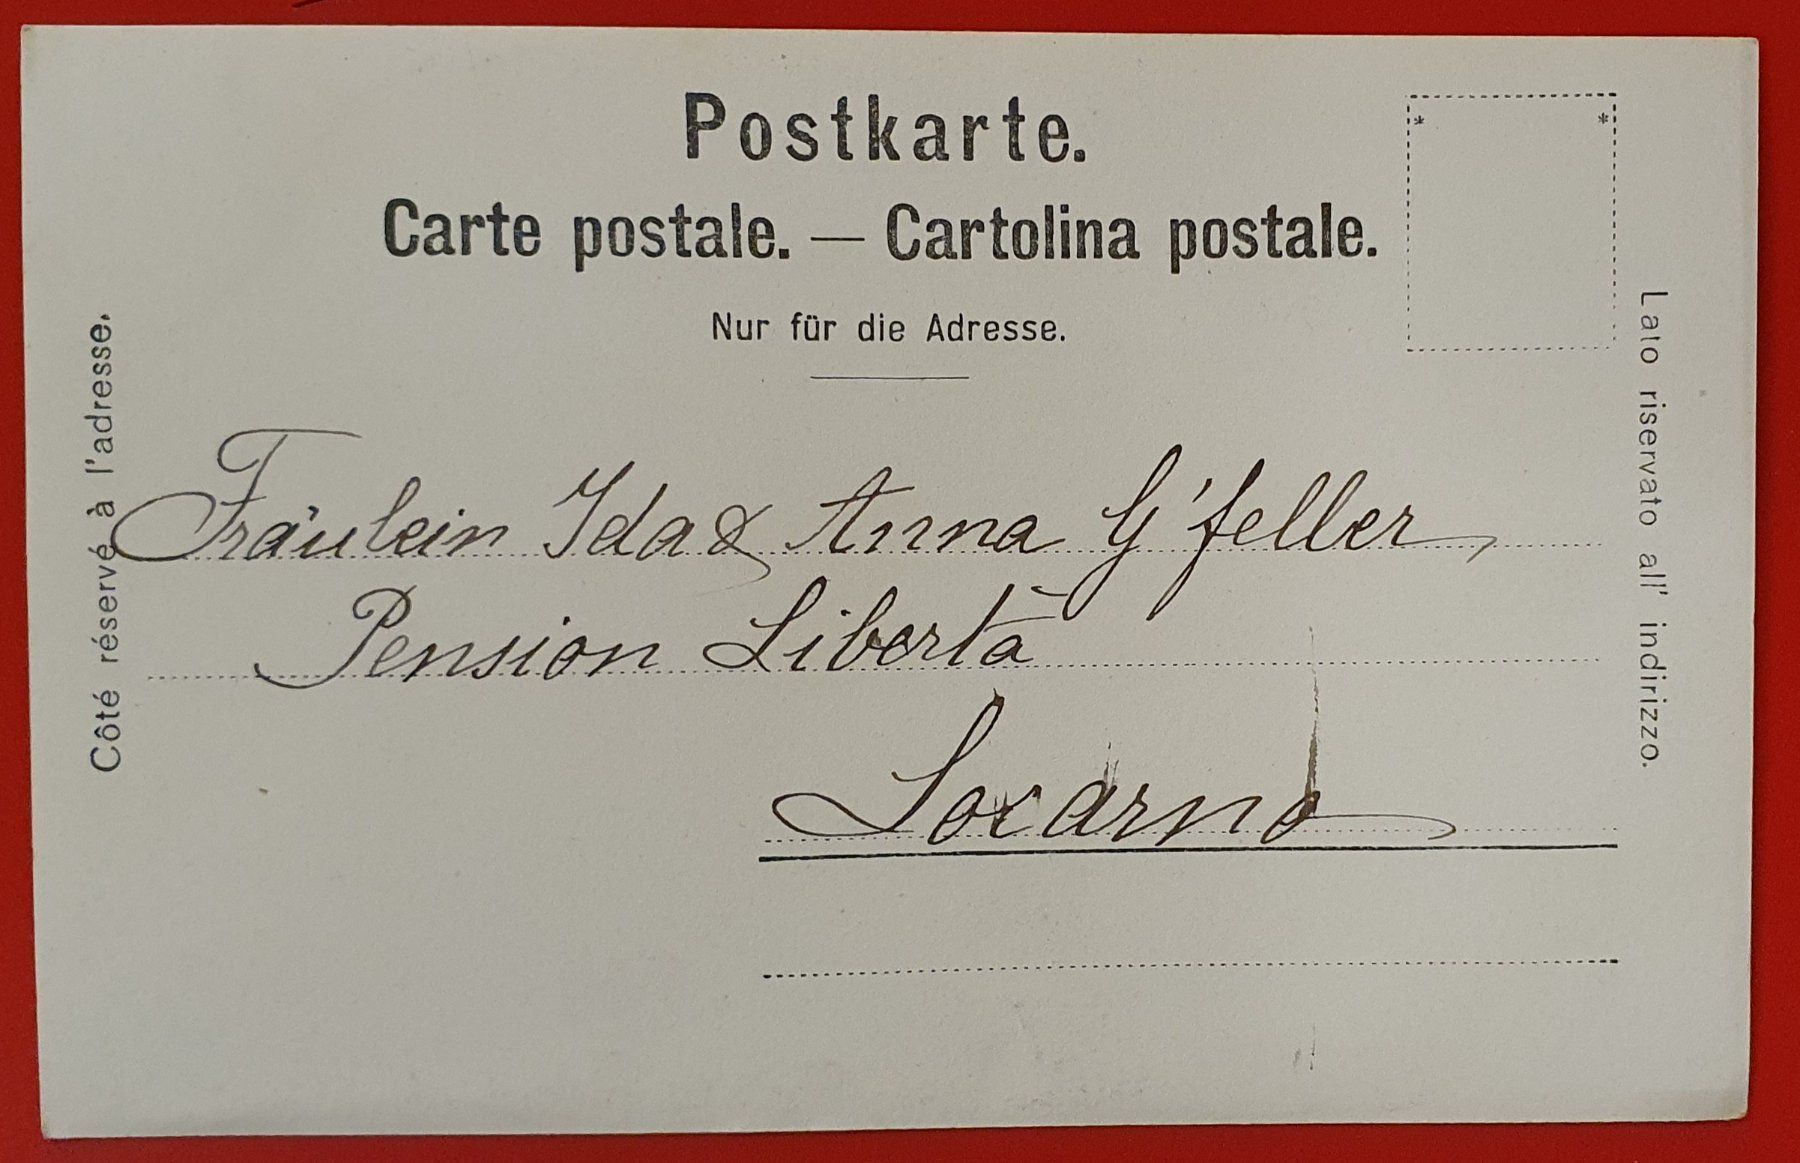 Postkarte.
Carte postale. — Cartolina postale.
Nur für die Adresse.
Côté réservé à l'adresse.
Lato riservato all' indirizzo.
Fräulein Ida & Anna G'feller,
Pension Libertà
Locarno